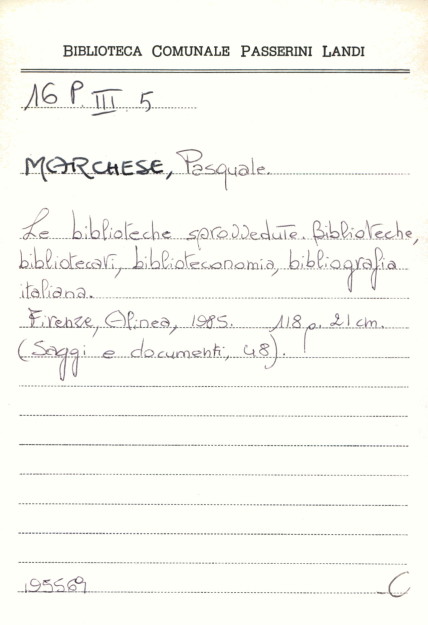 BIBLIOTECA COMUNALE PASSERINI LANDI
16 P. III 5
MARCHESE, Pasquale.
Le biblioteche sprovvedute. Biblioteche,
bibliotecari, biblioteconomia, bibliografia
italiana.
Firenze, Alinea, 1985. 118 p. 21 cm.
(Saggi e documenti, 48).
195569 C